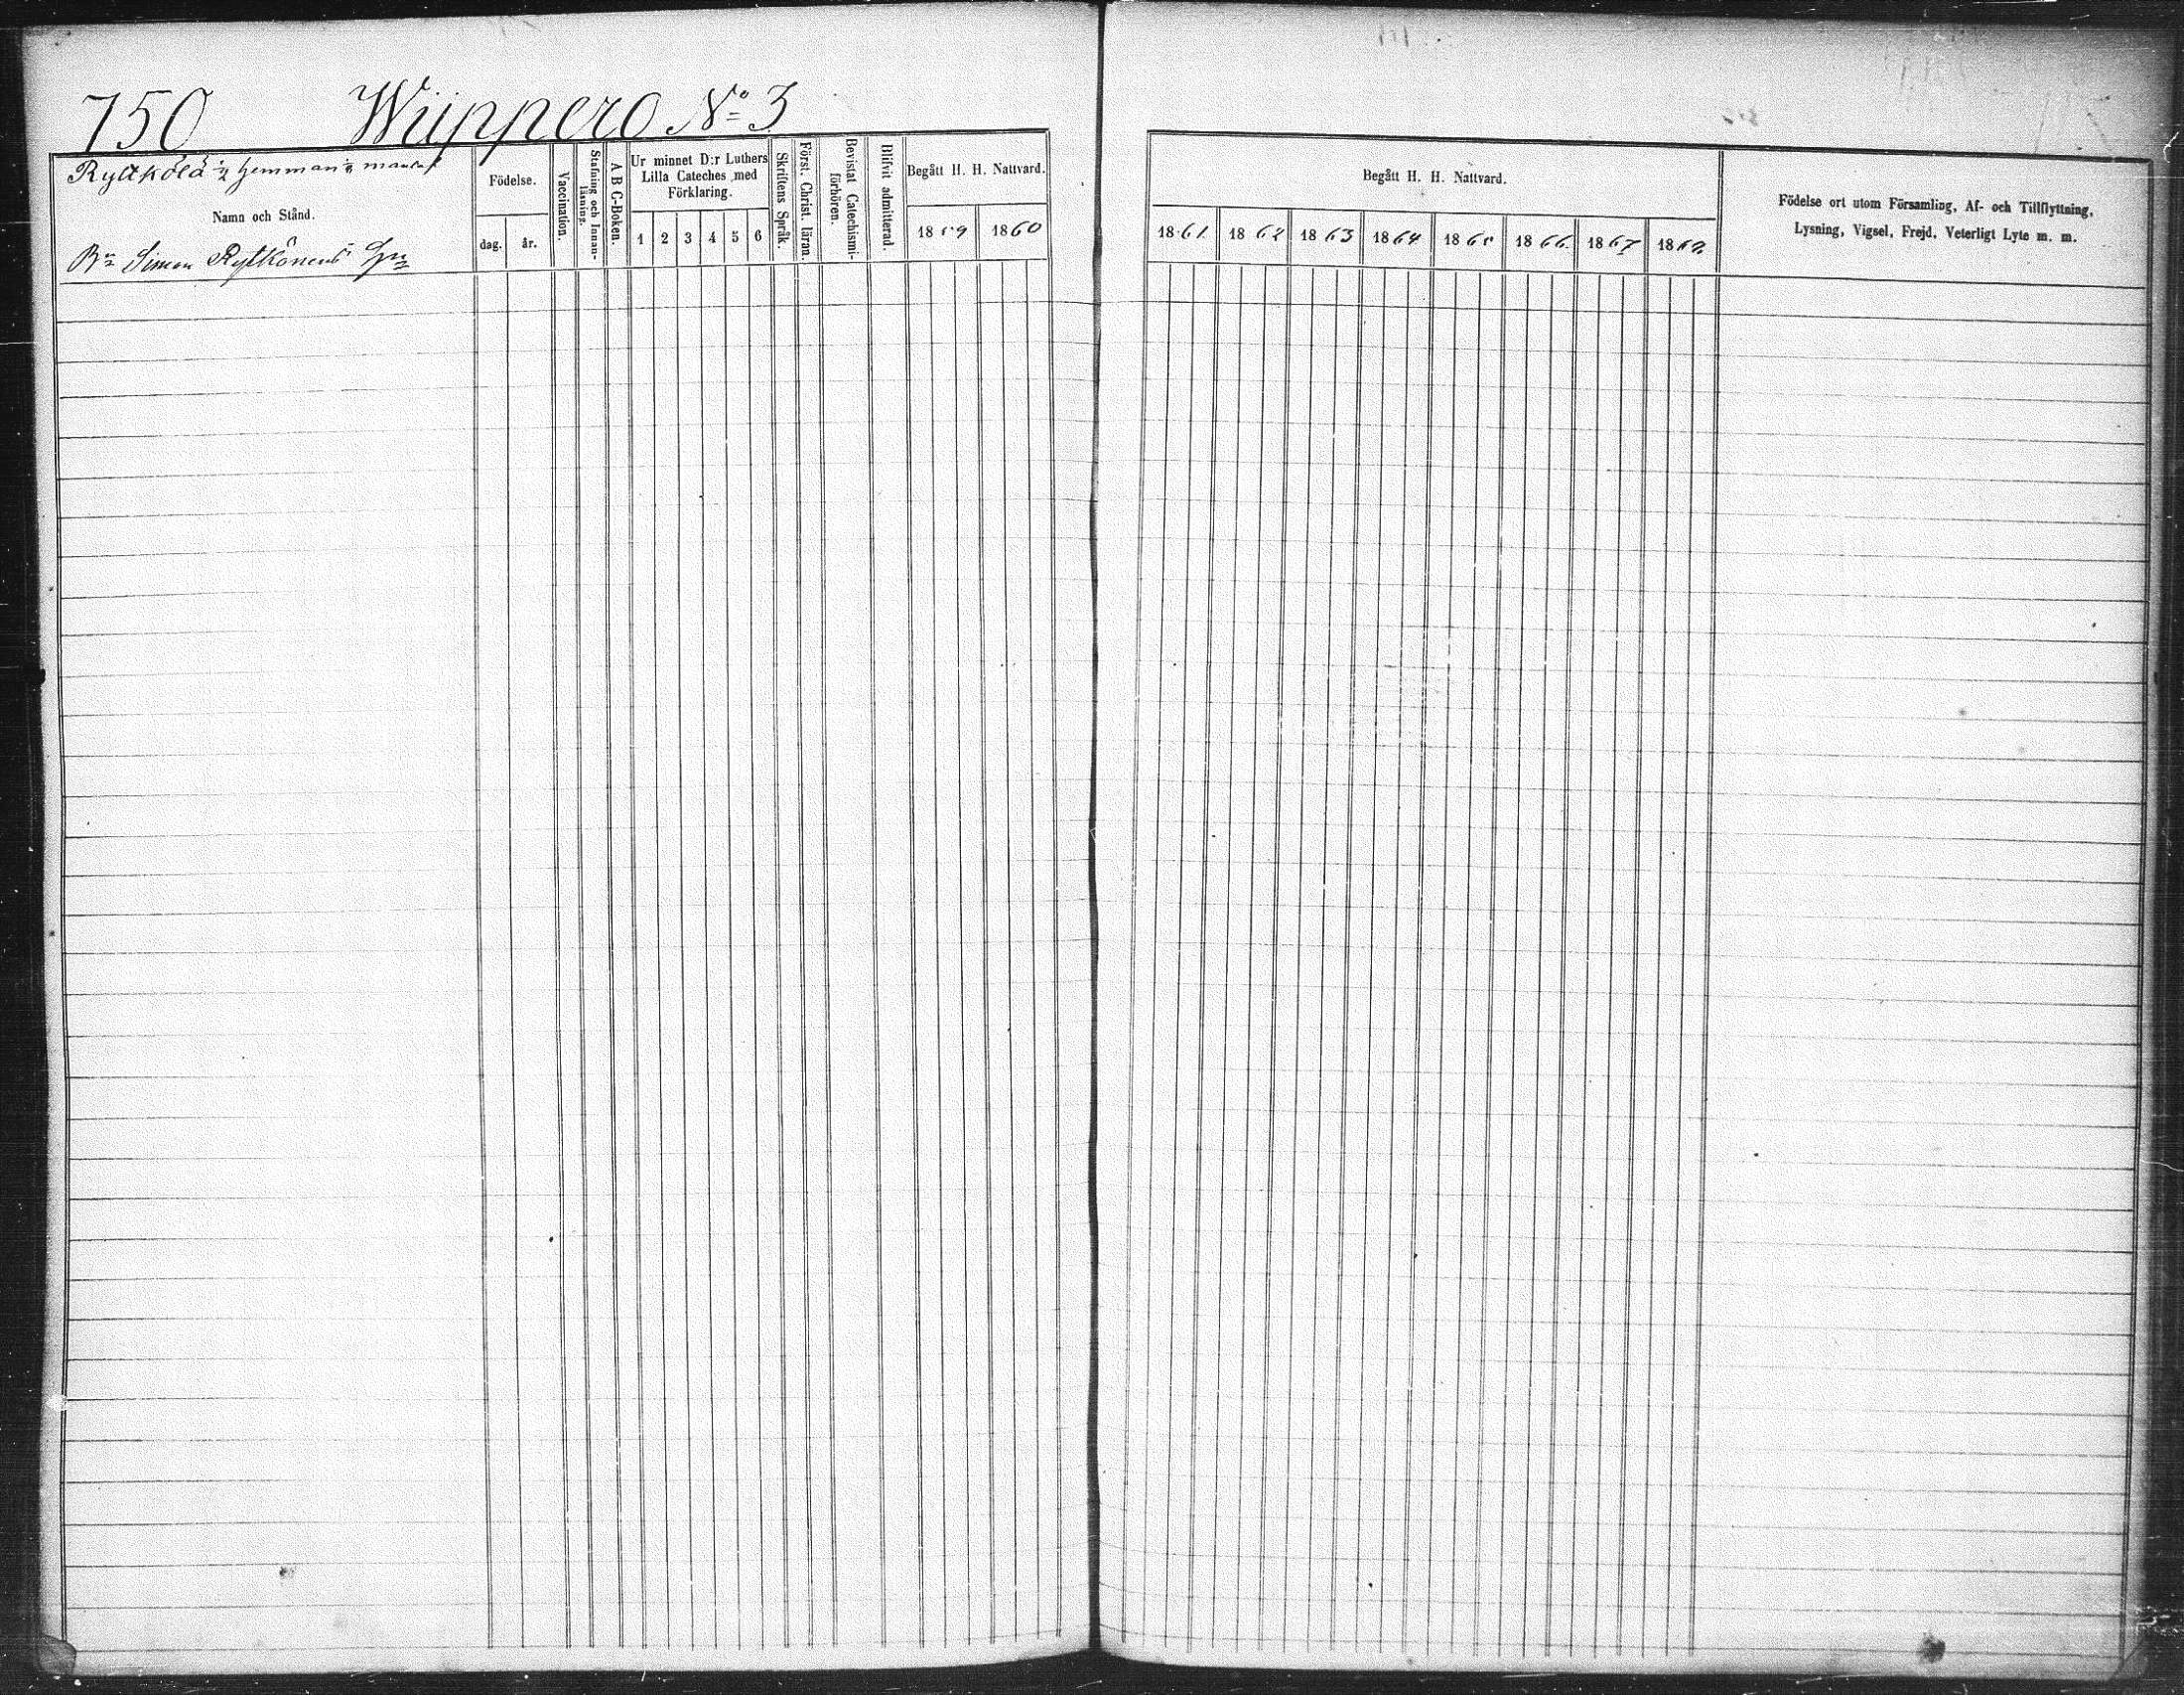 750 Wiippero No 3
Rytkölä 1/2 hemman
Namn och Stånd.
Bn Simon Rytkönens
Födelse.
dag. år.
Vaccination.
Stafning och Innanläsning.
A B C-Boken.
Ur minnet D:r Luthers
Lilla Cateches med
Förklaring.
1 2 3 4 5 6
Skriftens Språk.
Först. Christ. läran.
Bevistat Catechismi-
förhören.
Blifvit admitterad.
Begått H. H. Nattvard.
1859 1860
Begått H. H. Nattvard.
1861. 1862 1863 1864 1865 1866. 1867 1868
Födelse ort utom Församling, Af- och Tillflyttning,
Lysning, Vigsel, Frejd, Veterligt Lyte m. m.